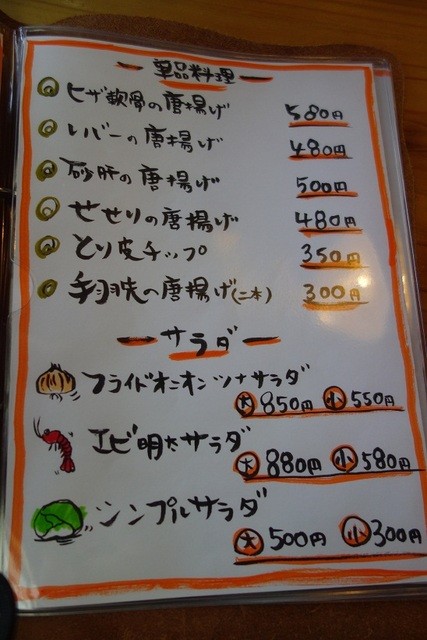 単品料理
ヒザ軟骨の唐揚げ 580円
レバーの唐揚げ 480円
砂肝の唐揚げ 500円
せせりの唐揚げ 480円
とり皮チップ 350円
手羽先の唐揚げ(二本) 300円
サラダ
フライドオニオンツナサラダ
大 850円 小 550円
エビ明太サラダ
大 880円 小 580円
シンプルサラダ
大 500円 小 300円